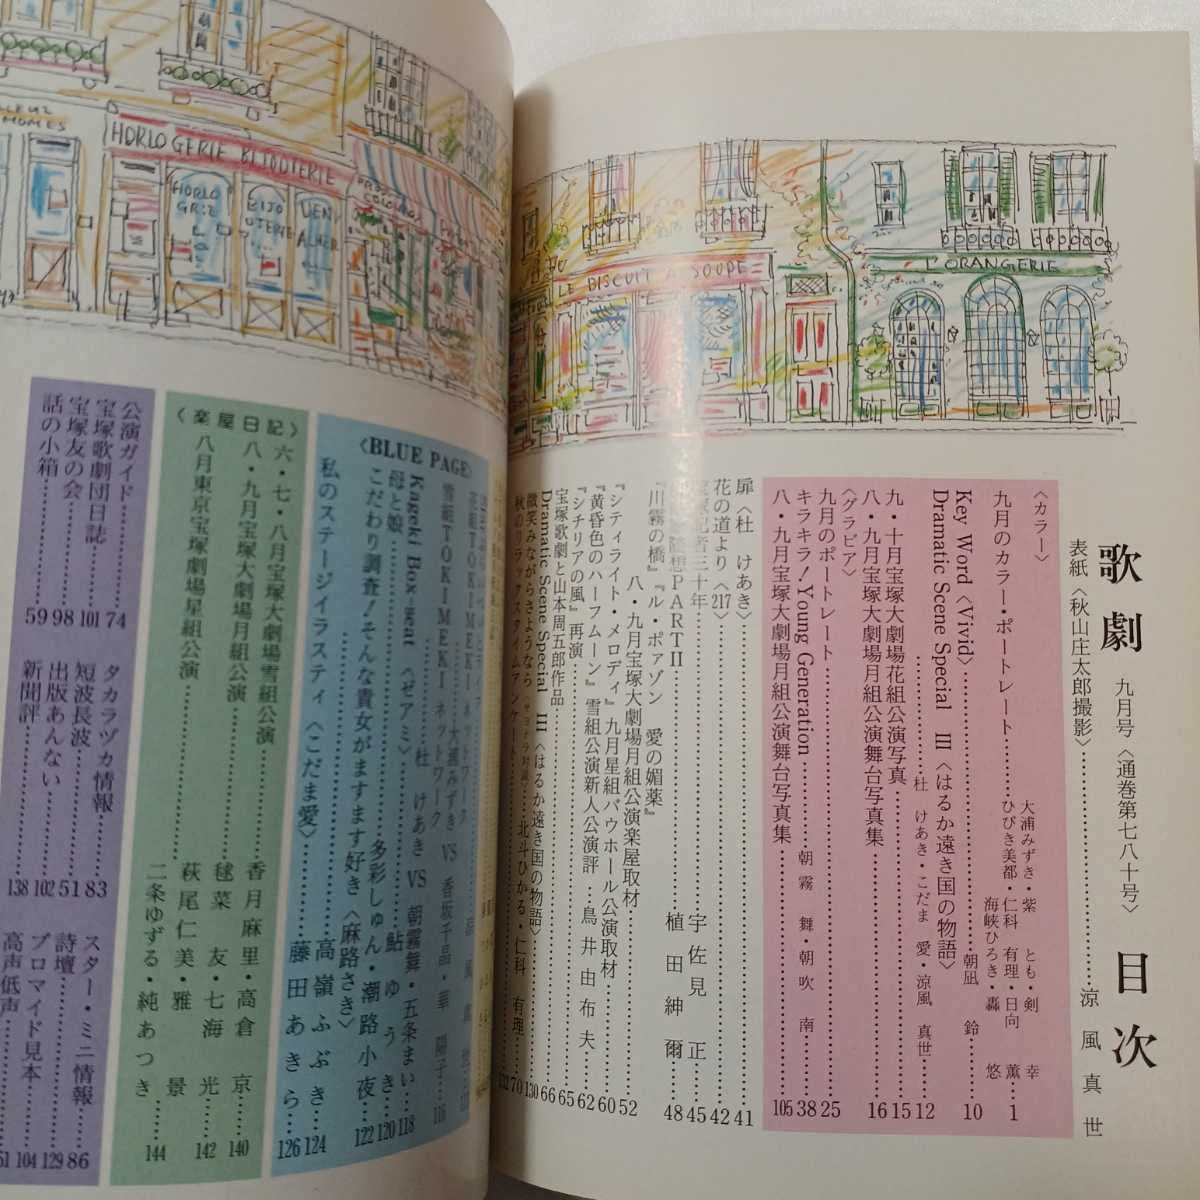 歌劇 九月号〈通巻第七八十号〉 目次
表紙〈秋山庄太郎撮影〉 涼風真世
〈カラー〉
九月のカラー・ポートレート 大浦みずき・紫 とも・剣 幸
ひびき美都・仁科 有理・日向 薫
海峡ひろき・轟 悠 1
Key Word〈Vivid〉 朝凪 鈴 10
Dramatic Scene Special Ⅲ〈はるか遠き国の物語〉
杜 けあき・こだま 愛・涼風 真世 12
九・十月宝塚大劇場花組公演写真 15
八・九月宝塚大劇場月組公演舞台写真集 16
〈グラビア〉
九月のポートレート 25
キラキラ！Young Generation 朝霧 舞・朝吹 南 38
八・九月宝塚大劇場月組公演舞台写真集 105
扉〈杜 けあき〉 41
花の道より〈217〉 42
記者三十年 宇佐見 正 45
随想PARTⅡ 植田紳爾 48
『川霧の橋』『ル・ポァゾン 愛の媚薬』
八・九月宝塚大劇場月組公演楽屋取材 52
『シティライト・メロディ』九月星組バウホール公演取材 60
『黄昏色のハーフムーン』雪組公演新人公演評 鳥井由布夫 62
『シチリアの風』再演 65
宝塚歌劇と山本周五郎作品 66
Dramatic Scene Special Ⅲ〈はるか遠き国の物語〉 130
微笑みながらさようなら 北斗ひかる・仁科 有理 70
秋のリラックスタイムアンケート
〈BLUE PAGE〉
花組TOKIMEKIネットワーク
大浦みずき VS 香坂千晶・華 陽子 116
雪組TOKIMEKIネットワーク
杜 けあき VS 朝霧舞・五条まい 118
Kageki Box・seat〈ゼアミ〉 鮎 ゆうき 120
母と娘 多彩しゅん・潮路小夜 122
こだわり調査！そんな貴女がますます好き〈麻路さき〉 高嶺ふぶき 124
私のステージイラスティ〈こだま愛〉 藤田あきら 126
〈楽屋日記〉
六・七・八月宝塚大劇場雪組公演 香月麻里・高倉 京 140
八・九月宝塚大劇場月組公演 毬菜 友・七海 光 142
萩尾仁美・雅 景
八月東京宝塚劇場星組公演 二条ゆずる・純あつき 144
公演ガイド 74
宝塚歌劇団日誌 101
宝塚友の会 98
話の小箱 59
タカラヅカ情報 83
短波長波 51
出版あんない 102
新聞評 138
スター・ミニ情報 86
詩壇 129
ブロマイド見本 104
高声低声
HORLOGERIE BIJOUTERIE
LE BISCUIT A SOUPE
L'ORANGERIE